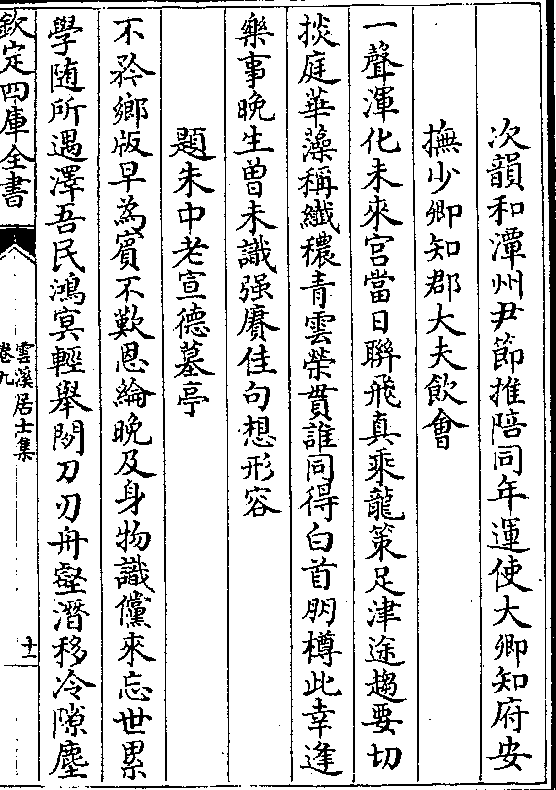 次韻和潭州尹節推陪同年運使大卿知府安
撫少卿知郡大夫飲會
一聲渾化未來宮當日聯飛真乘龍策足津途趨要切
掞庭華藻稱纖穠青雲榮貫誰同得白首朋樽此幸逢
樂事晚生曽未識强賡佳句想形容
題朱中老宣德墓亭
不矜鄉版早為賓不歎恩綸晚及身物識儻來忘世累
學随所遇澤吾民鴻㝠輕舉閉刀刃舟壑潛移冷隙塵
欽定四庫全書
雲溪居士集
卷九
十二